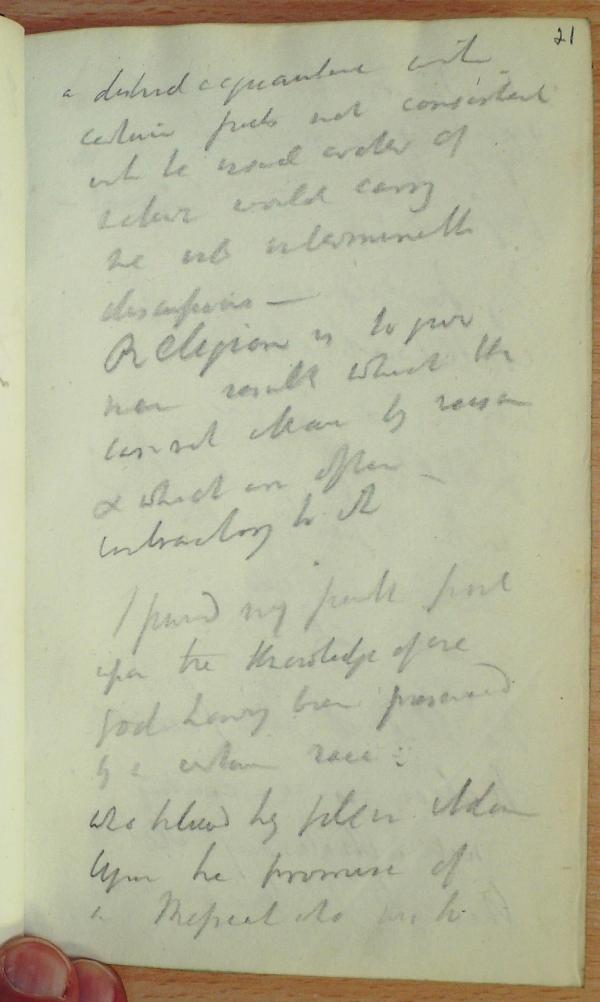 21
a distinct acquaintance with
certain facts not consistent
with the usual order of
nature would carry
me into interminable
discussions —
Religion is to give
man results which He
cannot obtain by reason
& which are often
contradictory to it
I found my faith first
upon the Knowledge of one
God having been preserved
by a certain race
who believed by
Upon the promise of
a